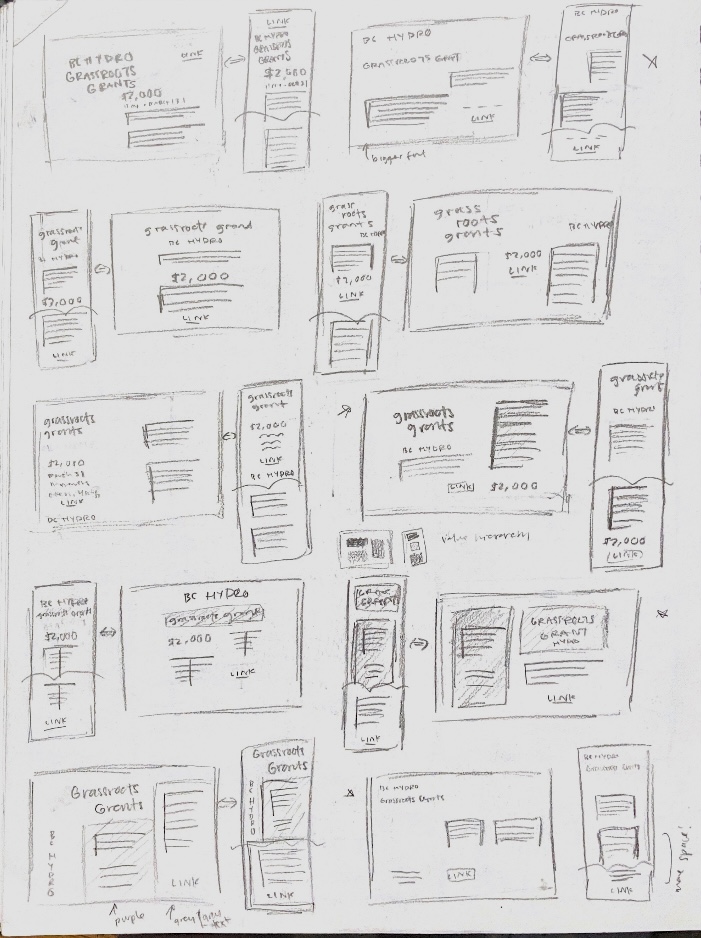 BC HYDRO
GRASSROOTS
GRANTS
$2,000
LINK
LINK
BC HYDRO
GRASSROOTS
GRANTS
$2,000
BC HYDRO
GRASSROOTS GRANT
LINK
bigger font
BC HYDRO
LINK
grassroots
grant
BC HYDRO
$2,000
LINK
grassroots grand
BC HYDRO
$2,000
LINK
grass
roots
grants
BC HYDRO
$2,000
LINK
grass
roots
grants
BC HYDRO
$2,000
LINK
grassroots
grants
$2,000
LINK
BC HYDRO
grassroots
grant
$2,000
LINK
BC HYDRO
grassroots
grants
BC HYDRO
LINK
$2,000
grassroots
grant
BC HYDRO
$2,000
(LINK)
value hierarchy
BC HYDRO
grassroots grants
$2,000
LINK
BC HYDRO
grassroots grants
$2,000
LINK
GRASS
GRANT
LINK
GRASSROOTS
GRANT
HYDRO
LINK
Grassroots
Grants
BC HYDRO
LINK
purple
grey
text
Grassroots
Grants
BC HYDRO
BC HYDRO
Grassroots Grants
LINK
BC HYDRO
Grassroots Grants
LINK